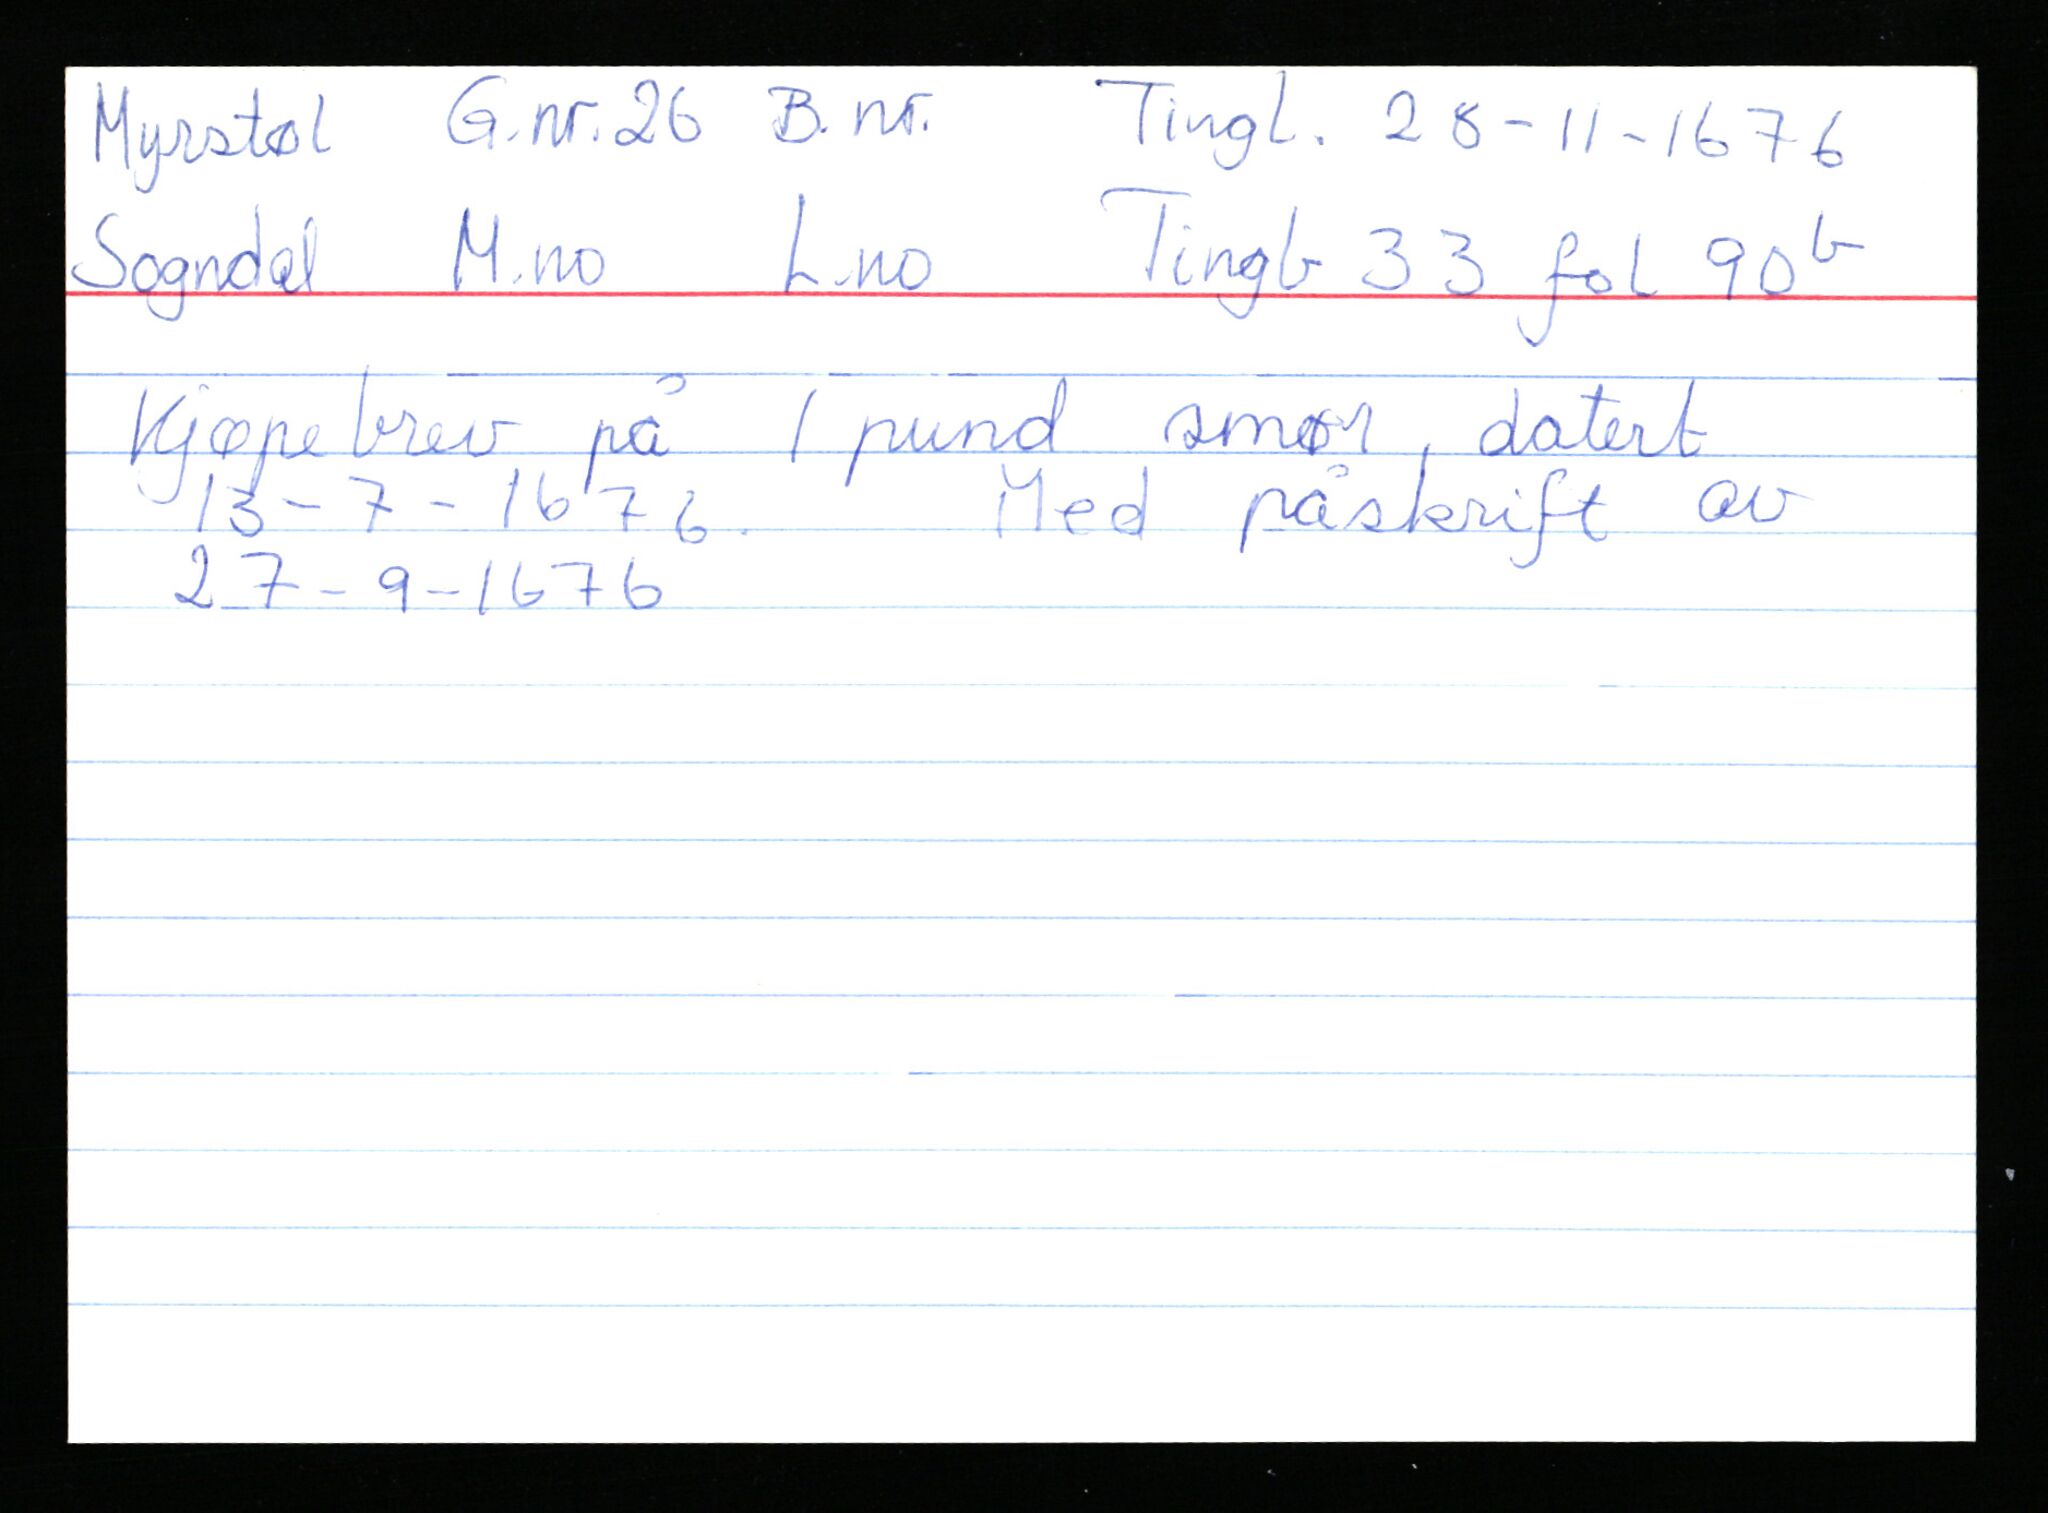 Myrstøl G.nr. 26 B.nr. Tingl. 28-11-1676
Sogndal M.no L.no Tingb 33 fol 90b
Kjøpebrev på 1 pund smør, datert
13-7-1676. Med påskrift av
27-9-1676